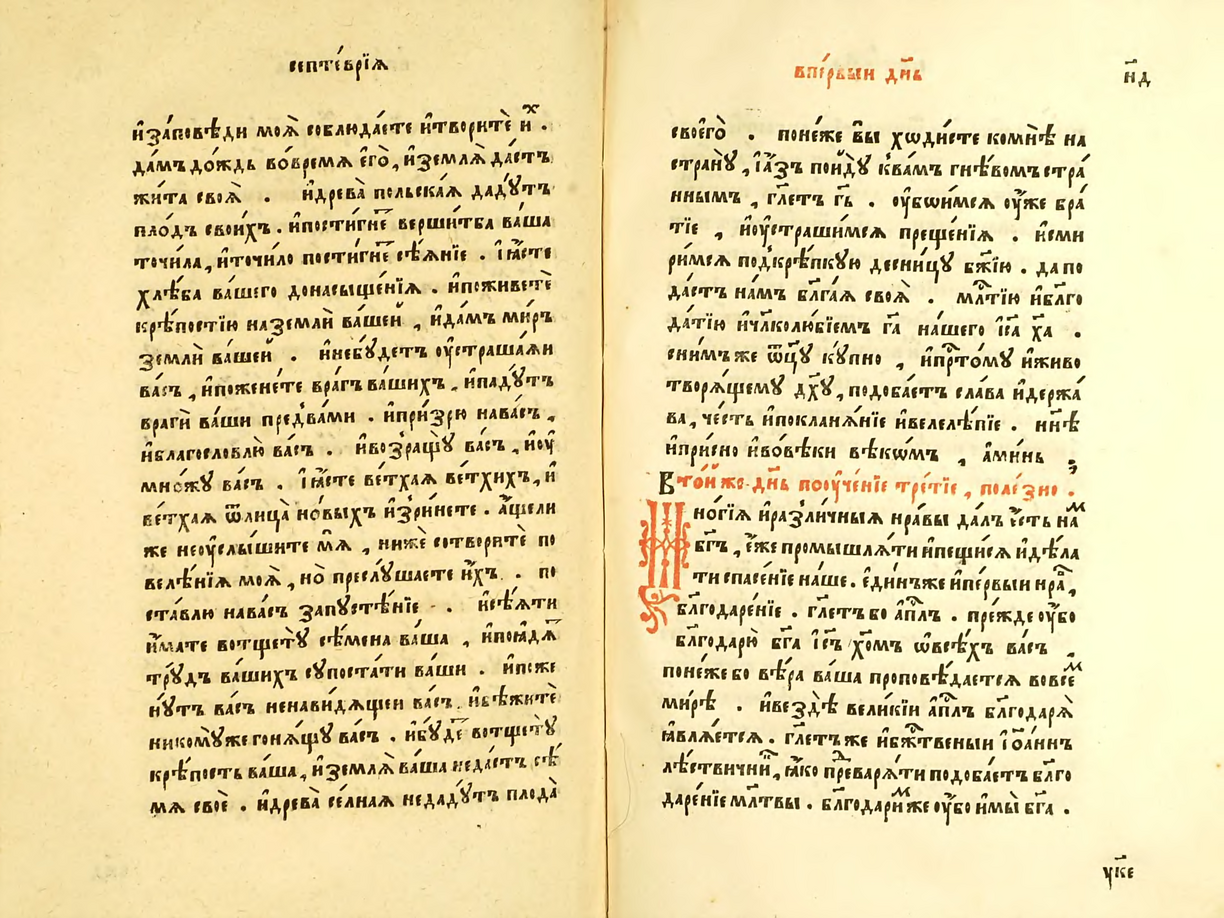 септе́врїѧ
и҆за́повѣди моѧ̀ соблюда́ете и҆творитѐ и҆̀х .
да́мъ до́ждь во́времѧ є҆го̀ , и҆землѧ̀ да́стъ
жи́та своѧ̀ . и҆древа̀ польска́ѧ даду́тъ
пло́дъ свои́хъ . и҆пости́гне верши́тба ва́ша
точи́ла , и҆точи́ло пости́гне сѣ́ѧнїе . і҆ꙗ҆́сте
хлѣ́ба ва́шего донасыще́нїѧ . и҆поживе́тѐ
крѣ́постїю наземлѝ ва́шей , и҆да́мъ ми́ръ
землѝ ва́шей . и҆небꙋ́детъ оу҆страша́ѧи
ва́съ , и҆пожене́те вра́гъ ва́шихъ , и҆падꙋ́тъ
врагѝ ва́ши пред̾ва́ми . и҆при́зрю нава́съ ,
и҆благословлю̀ ва́съ . и҆воз̾ращꙋ̀ ва́съ , и҆оу҆
мно́жꙋ ва́съ . і҆ꙗ҆́сте ве́тхаѧ ве́тхихъ , и҆
ве́тхаѧ ѿлица̀ но́выхъ и҆зри́нете . а҆́щели
же неоу҆слы́шите мѧ̀ , нижѐ сотворитѐ по
велѣ́нїѧ моѧ̀ , но̀ преслꙋ́шаете и҆́хъ . по
ста́влю нава́съ запꙋстѣ́нїе . и҆сѣ́ѧти
и҆́мате вотщетꙋ̀ сѣ́мена ва́ша , и҆поꙗдѧ́
трꙋ́дъ ва́шихъ сꙋпоста́ти ва́ши . и҆пože
нꙋ́тъ ва́съ ненави́дѧщеи ва́съ . и҆бѣжитѐ
никомꙋ́же гонѧ́щꙋ ва́съ . и҆бꙋ́де вотщетꙋ̀
крѣ́пость ва́ша , и҆землѧ̀ ва́ша неда́стъ сѣ́
мѧ своѐ . и҆древа̀ се́лнаѧ недадꙋ́тъ плода̀
впе́рвыи дн҃ь
н҃д
своего̀ . поне́же вы̀ хѡ́дисте комнѣ̀ на
странꙋ̀ , і҆а҆́зъ пои҆дꙋ̀ к̾ва́мъ гнѣ́вомъ стра́
ннымъ , гл҃етъ гь҃ . оу҆бѡи́мсѧ оу҆́же бра́
тїе , и҆оу҆страши́мсѧ преще́нїѧ . и҆сми
ри́мсѧ под̾крѣ́пкꙋю десни́цꙋ бж҃їю . да по
да́стъ на́мъ бл҃га́ѧ своѧ̀ . мл҃тїю и҆бл҃го
да́тїю и҆чл҃колю́бїемъ га҃ на́шего і҆са҃ ха҃ .
сни́мъже ѿц҃ꙋ̀ кꙋ́пно , и҆пр҃то́мꙋ и҆живо
творѧ́щемꙋ дх҃ꙋ , подоба́етъ сла́ва и҆держа́
ва , че́сть и҆покланѧ́нїе и҆велелѣ́пїе . нн҃ѣ
и҆при́сно и҆во́вѣки вѣкѡ́мъ , а҆ми́нь .
Вто́й же дн҃ь пооуче́нїе тре́тїе , поле́зно .
Мно́гїѧ и҆раз̾ли́чныѧ нра́вы да́лъ є҆́сть на́м
бг҃ъ , є҆́же промышлѧ́ти и҆пещи́сѧ и҆дѣ́ла
ти спасе́нїе на́ше . є҆ди́нъже и҆пе́рвыи нра́в ,
благодаре́нїе . гл҃етъ бо а҆пл҃ъ . пре́жде оу҆́бо
благодарю̀ бг҃а і҆с҃ъ хо҃мъ ѡ҆все́хъ ва́съ ,
поне́же бо вѣ́ра ва́ша проповѣ́даетсѧ вовсе́м
ми́рѣ . и҆вездѣ̀ вели́кїи а҆пл҃ъ бл҃годарѧ̀
ꙗ҆влѧ́етсѧ . гл҃етъ же и҆бж҃твеныи і҆ѻа́ннъ
лѣ́ствичнии , ꙗ҆́ко преварѧ́ти подоба́етъ бл҃го
даре́нїе мл҃твы . бл҃годари́м же оу҆́бо и҆мы̀ бг҃а .
ук҃е